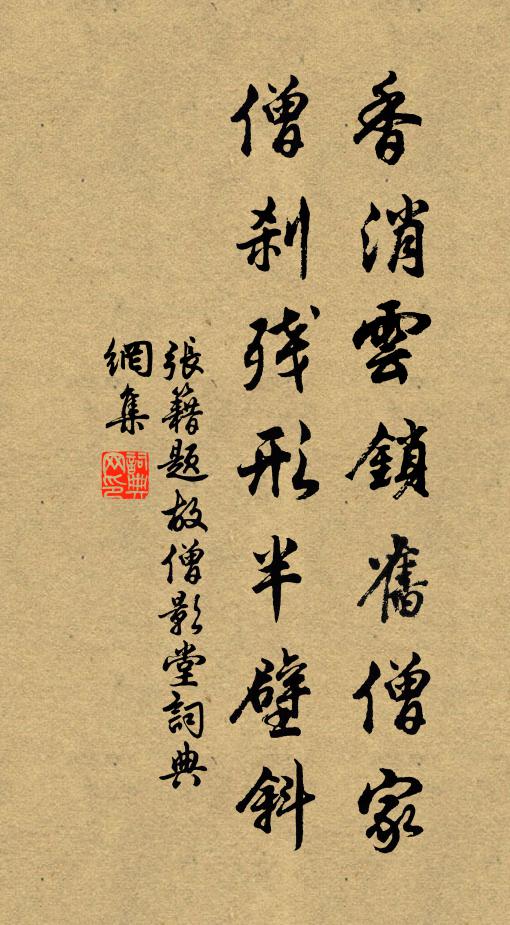 香消雲鎖舊僧家
僧刹残形半壁斜
張籍題故僧影堂詞典
網集
詞典
网印